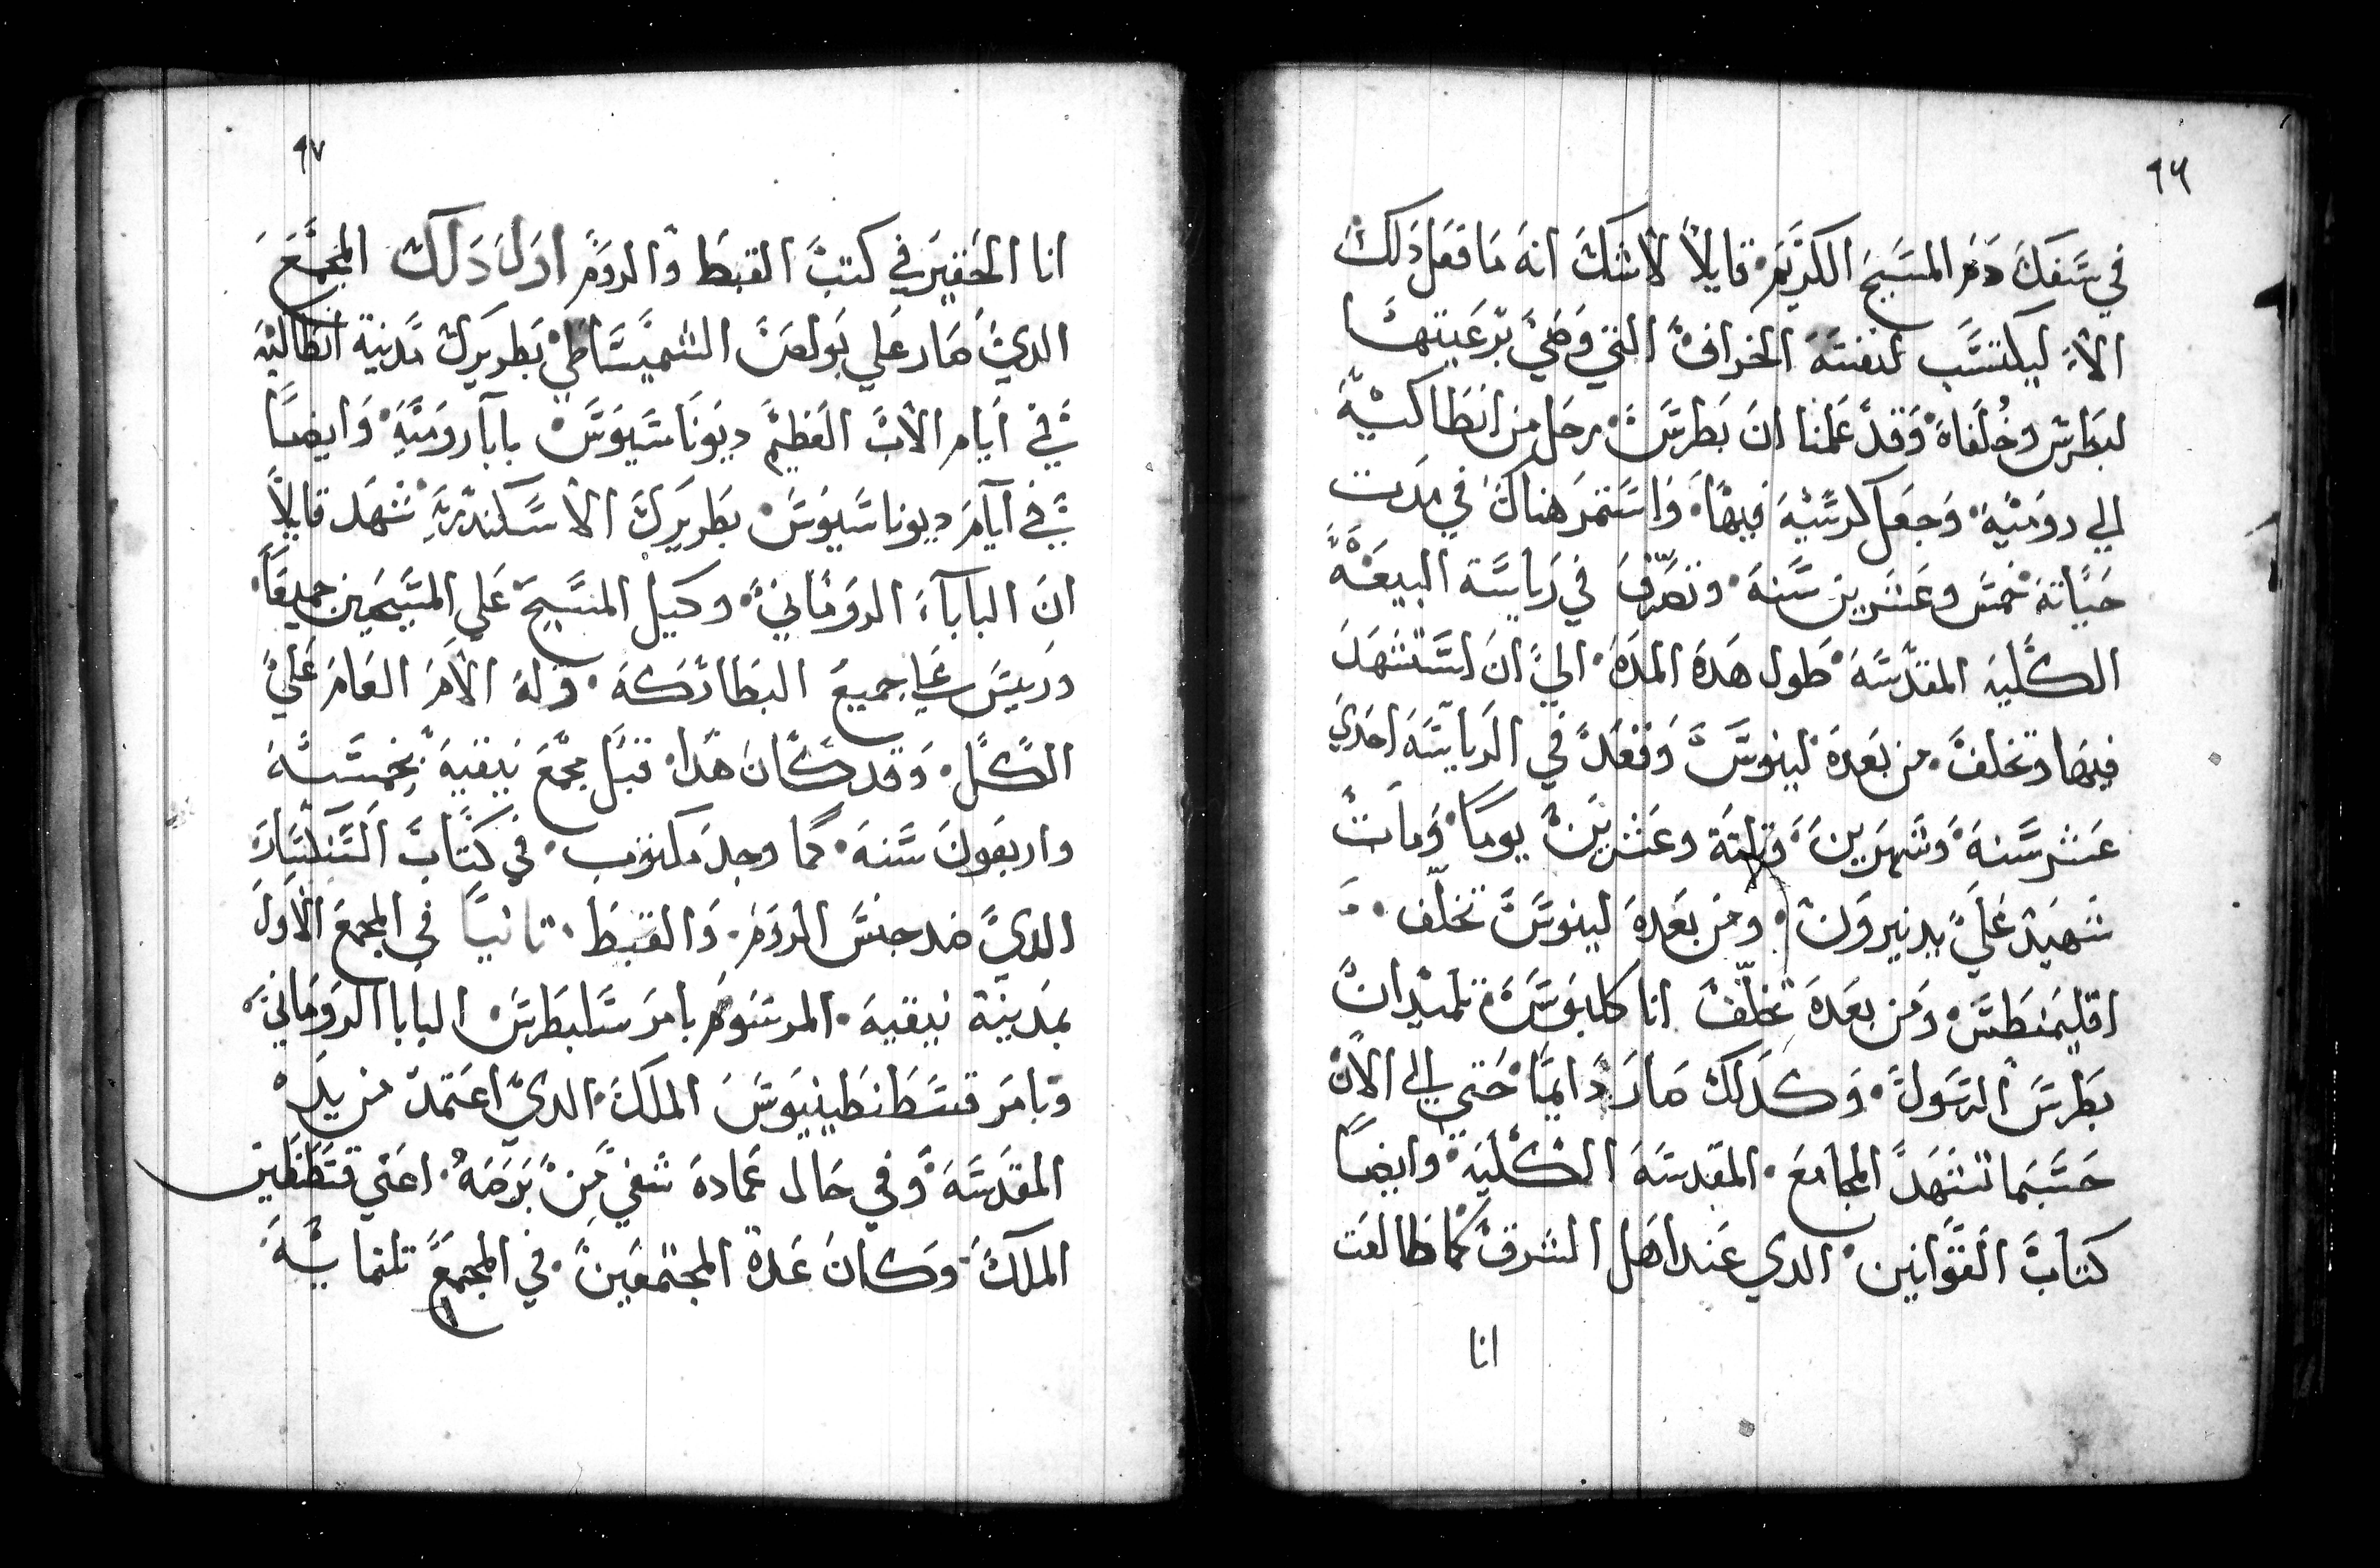 ٩٦
في سفك دم المسيح الكريم. قايلاً لاشك انه ما فعل دلك
الا ليكتسب لنفسه الخراف التي وصي برعيتها
لبطرس وخلفاه وقد علمنا ان بطرس رحل من انطاكيه
الي روميه. وجعل كرسيه فيها. واستمر هناك في مدت
حياته خمس وعشرين سنه. وتصرف في رياسة البيعه
الكليه المقدسه طول هده المده. الي ان استشهد
فيها وتخلف. من بعده لينوس وقعد في الرياسه احدي
عشر سنه وشهرين وتلتة وعشرين يوما. ومات
شهيد علي يد نيرون. ومن بعده لينوس تخلف.
اقليمنطس ومن بعده تخلف انا كليوس تلميدان
بطرس الرسول. وكدلك صار دايما حتي الي الان
حسبما تشهد المجامع. المقدسه الكليه وايضا
كتاب القوانين الدي عند اهل الشرق كما طالعت
انا
٩٧
انا الحقير في كتب القبط والروم اول دلك المجمع
الدي صار علي بولص الشميساطي بطريرك مدينة انطاليه
في ايام الاب العظيم ديوناسيوس بابا روميه وايضا
في ايام ديوناسيوس بطريرك الاسكندريه شهد قايلاً
ان الباباء الروماني وكيل المسيح علي المسيحين جميعاً.
وريس علي جميع البطاركه. وله الامر العام علي
الكل. وقد كان هدا قبل مجمع نيقيه بخمسه
واربعون سنه. كما وجد مكتوب. في كتاب التنكسار
الدي ضد جنس الروم. والقبط. تانيا في المجمع الاول
بمدينة نيقيه. المرسوم بامر سلبطرس البابا الروماني
وبامر قسطنطينيوس الملك. الدي اعتمد من يده
المقدسه وفي حال عماده شفي من برصه. اعني قسطنطين
الملك. وكان عدة المجتمعين. في المجمع تلتمايه